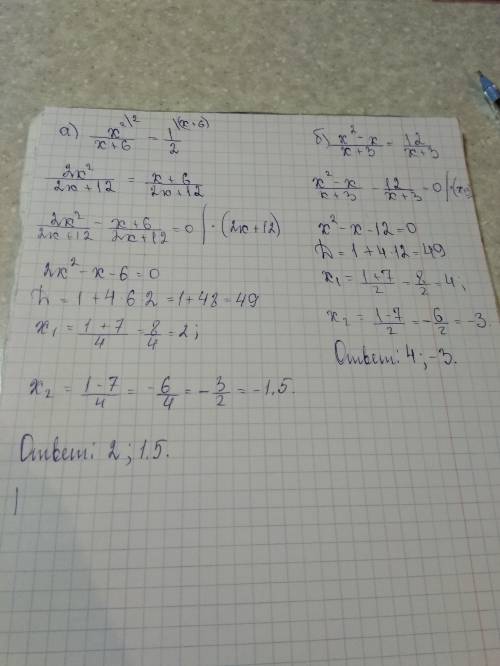 а) x²/(x+6) |2 = 1/2 |(x+6)
2x²/(2x+12) = (x+6)/(2x+12)
2x²/(2x+12) - (x+6)/(2x+12) = 0 | · (2x+12)
2x² - x - 6 = 0
D = 1 + 4·6·2 = 1 + 48 = 49
x₁ = (1+7)/4 = 8/4 = 2;
x₂ = (1-7)/4 = -6/4 = -3/2 = -1.5.
Ответ: 2; 1.5.
б) (x²-x)/(x+3) = 12/(x+3)
(x²-x)/(x+3) - 12/(x+3) = 0 | ·(x
x² - x - 12 = 0
D = 1 + 4·12 = 49
x₁ = (1+7)/2 = 8/2 = 4;
x₂ = (1-7)/2 = -6/2 = -3.
Ответ: 4; -3.